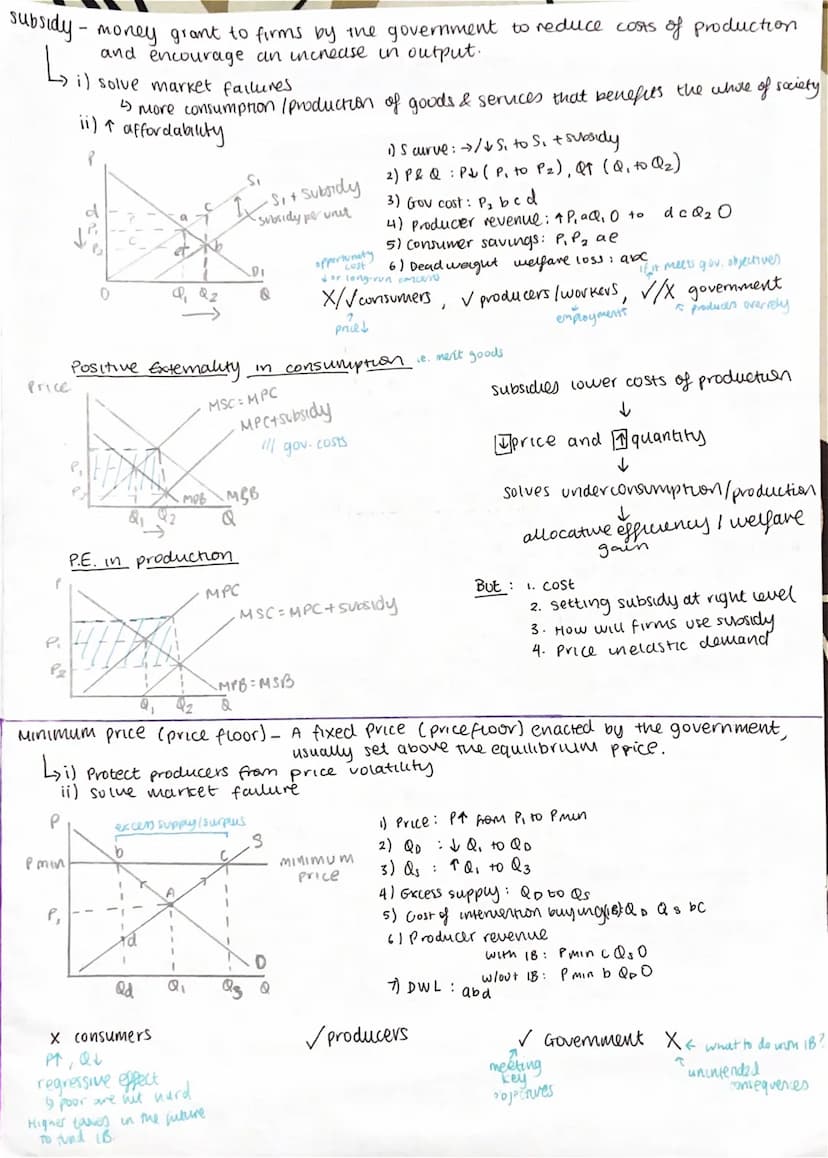 subsidy - money grant to firms by the government to reduce costs of production
and encourage an increase in output.
↳ i) solve market failures
↳ more consumption/production of goods & services that benefits the whole of society
ii) ↑ affordability
P
S₁
S₁ + subsidy
subsidy per unit
d
?
a
c
P₁
P₂
b
D₁
O
Q₁ Q₂ Q
1) S curve: →/↓ S₁ to S₁ + subsidy
2) P & Q : P↓ (P₁ to P₂), Q↑ (Q₁ to Q₂)
3) Gov cost: P₂ b c d
4) Producer revenue: ↑ P₁ a Q₁ O to d c Q₂ O
5) Consumer savings: P₁ P₂ a e
6) Deadweight welfare loss: abc
opportunity
cost
if it meets gov. objectives
X/√ consumers, √ producers/workers, √/X government
↑
price↓
employment↑
↖ producer overrely
Positive Externality in consumption i.e. merit goods
Price
MSC = MPC
MPC + subsidy
/// gov. costs
P₁
MPB MSB
Q₁ Q₂ Q
subsidies lower costs of production
↓
↓ price and ↑ quantity
↓
solves underconsumption/production
↓
allocative efficiency / welfare
gain
P.E. in production
P
MPC
MSC = MPC + subsidy
P₁
P₂
MPB = MSB
Q₁ Q₂ Q
But : 1. cost
2. setting subsidy at right level
3. How will firms use subsidy
4. Price inelastic demand
Minimum price (price floor) - A fixed price (price floor) enacted by the government,
usually set above the equilibrium price.
↳ i) Protect producers from price volatility
ii) solve market failure
P
excess supply/surplus
S
b
c
P min
minimum
price
A
P₁
d
D
Qd Q₁ Q3 Q
1) Price: P↑ from P₁ to Pmin
2) QD : ↓ Q₁ to QD
3) Qs : ↑ Q₁ to Q3
4) Excess supply: QD to Qs
5) Cost of intervention buying QD Qs bc
6) Producer revenue
with IB: Pmin c Qs O
w/out IB: Pmin b QD O
7) DWL : abd
X consumers
√ producers
√ Government X ← what to do with IB?
P↑, Q↓
regressive effect
↳ poor are hit hard
Higher taxes in the future
to fund IB
meeting
key
objectives
unintended
consequences